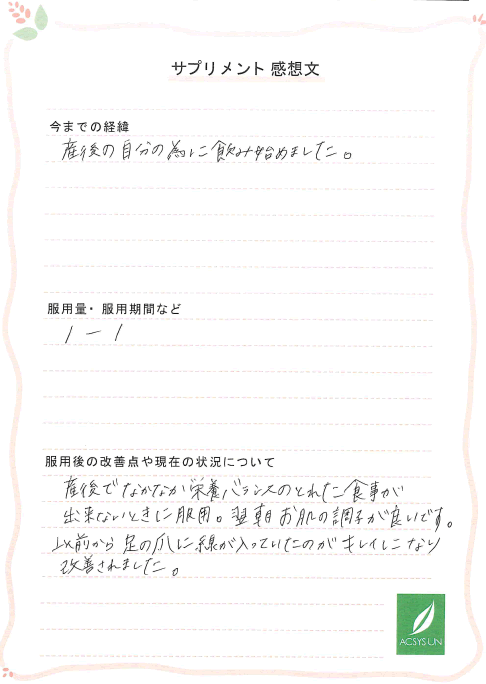 サプリメント 感想文
今までの経緯
産後の自分の為に飲み始めました。
服用量・服用期間など
1 ー 1
服用後の改善点や現在の状況について
産後でなかなか栄養バランスのとれた食事が
出来ないときに服用。翌朝お肌の調子が良いです。
以前から足の爪に線が入っていたのがキレイになり
改善されました。
ACSYSUN